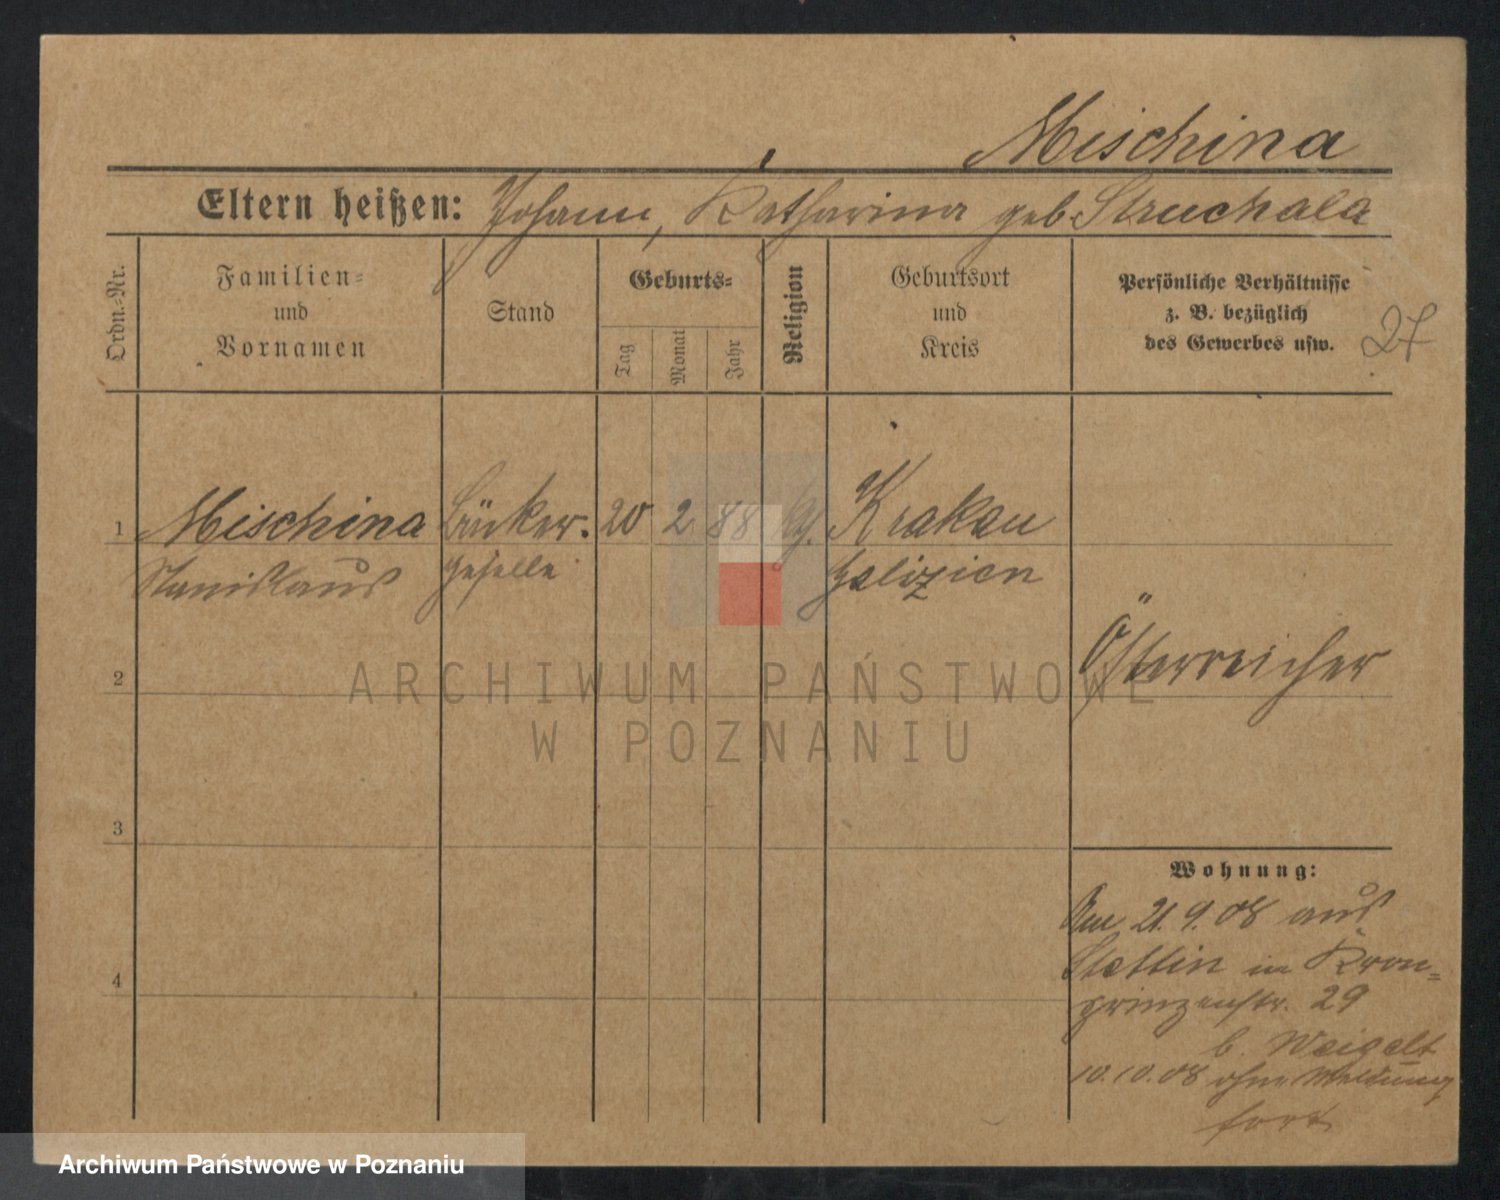 Mischina
Eltern heißen: Johann, Katharina geb. Struchala
Ordn.-Nr.
Familien-
und
Vornamen
Stand
Geburts-
Tag
Monat
Jahr
Religion
Geburtsort
und
Kreis
Persönliche Verhältnisse
z. B. bezüglich
des Gewerbes usw.
27
1 Mischina Bäcker- 20 2 88 Krakau
Stanislaus geselle Galizien
Österreicher
2
3
4
Wohnung:
Am 21.9.08 aus
Stettin in Kron-
prinzenstr. 29
b. Weigelt
10.10.08 ohne Meldung
fort
ARCHIWUM PAŃSTWOWE
W POZNANIU
Archiwum Państwowe w Poznaniu